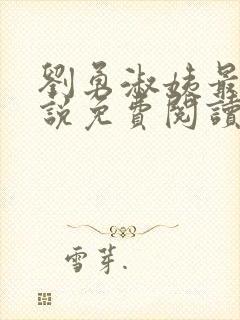 劉勇淑姨最
說免費閱讀
雪芽.